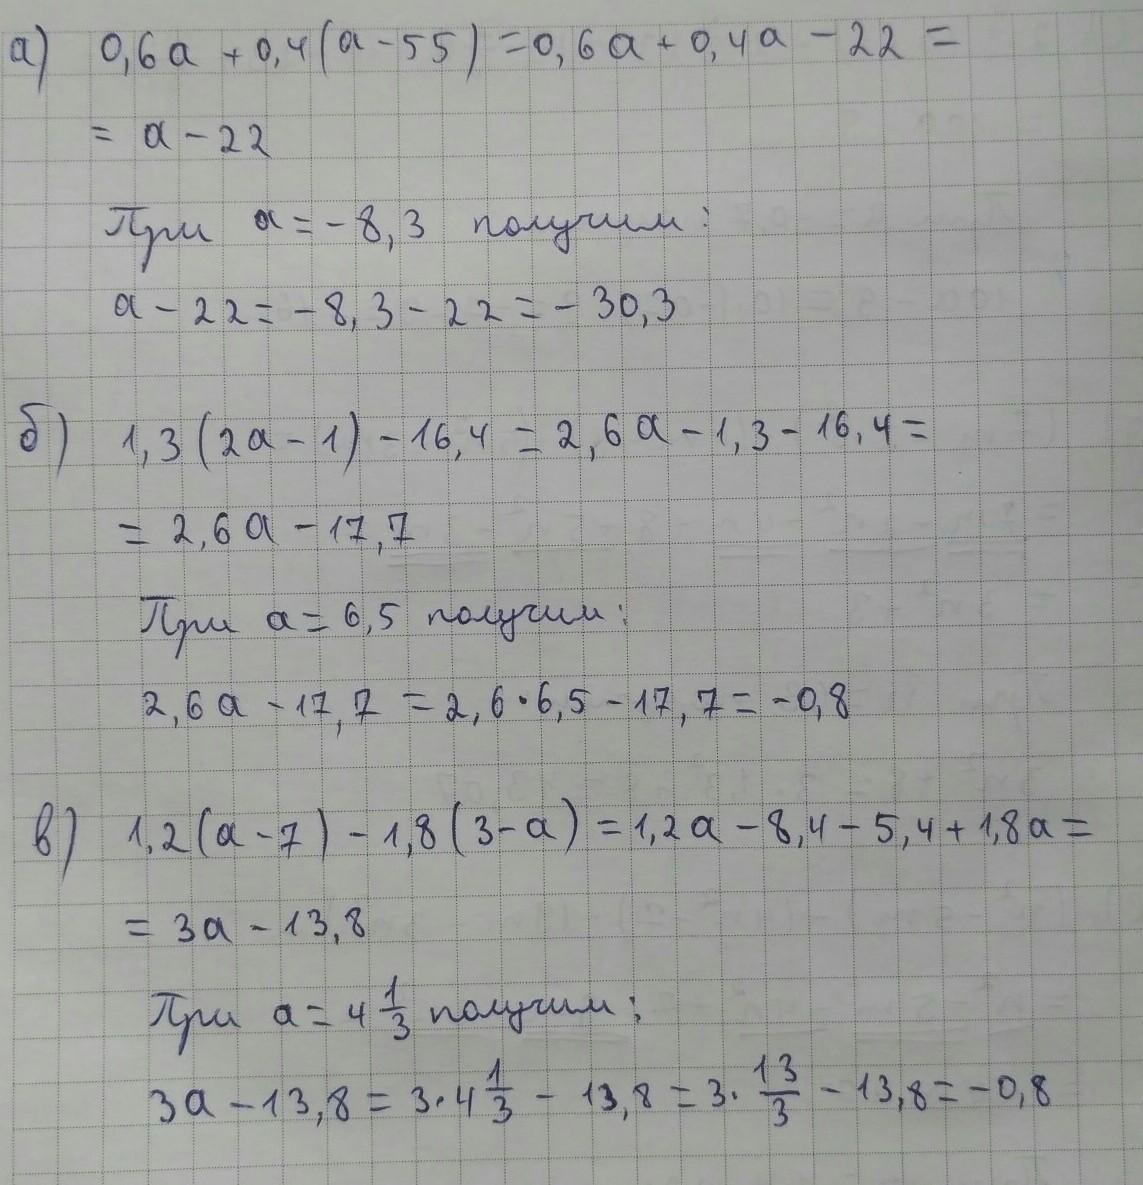 а) 0,6a + 0,4(a - 55) = 0,6a + 0,4a - 22 =
= a - 22
При a = -8,3 получим:
a - 22 = -8,3 - 22 = -30,3
б) 1,3(2a - 1) - 16,4 = 2,6a - 1,3 - 16,4 =
= 2,6a - 17,7
При a = 6,5 получим:
2,6a - 17,7 = 2,6 · 6,5 - 17,7 = -0,8
в) 1,2(a - 7) - 1,8(3 - a) = 1,2a - 8,4 - 5,4 + 1,8a =
= 3a - 13,8
При a = 4 1/3 получим:
3a - 13,8 = 3 · 4 1/3 - 13,8 = 3 · 13/3 - 13,8 = -0,8